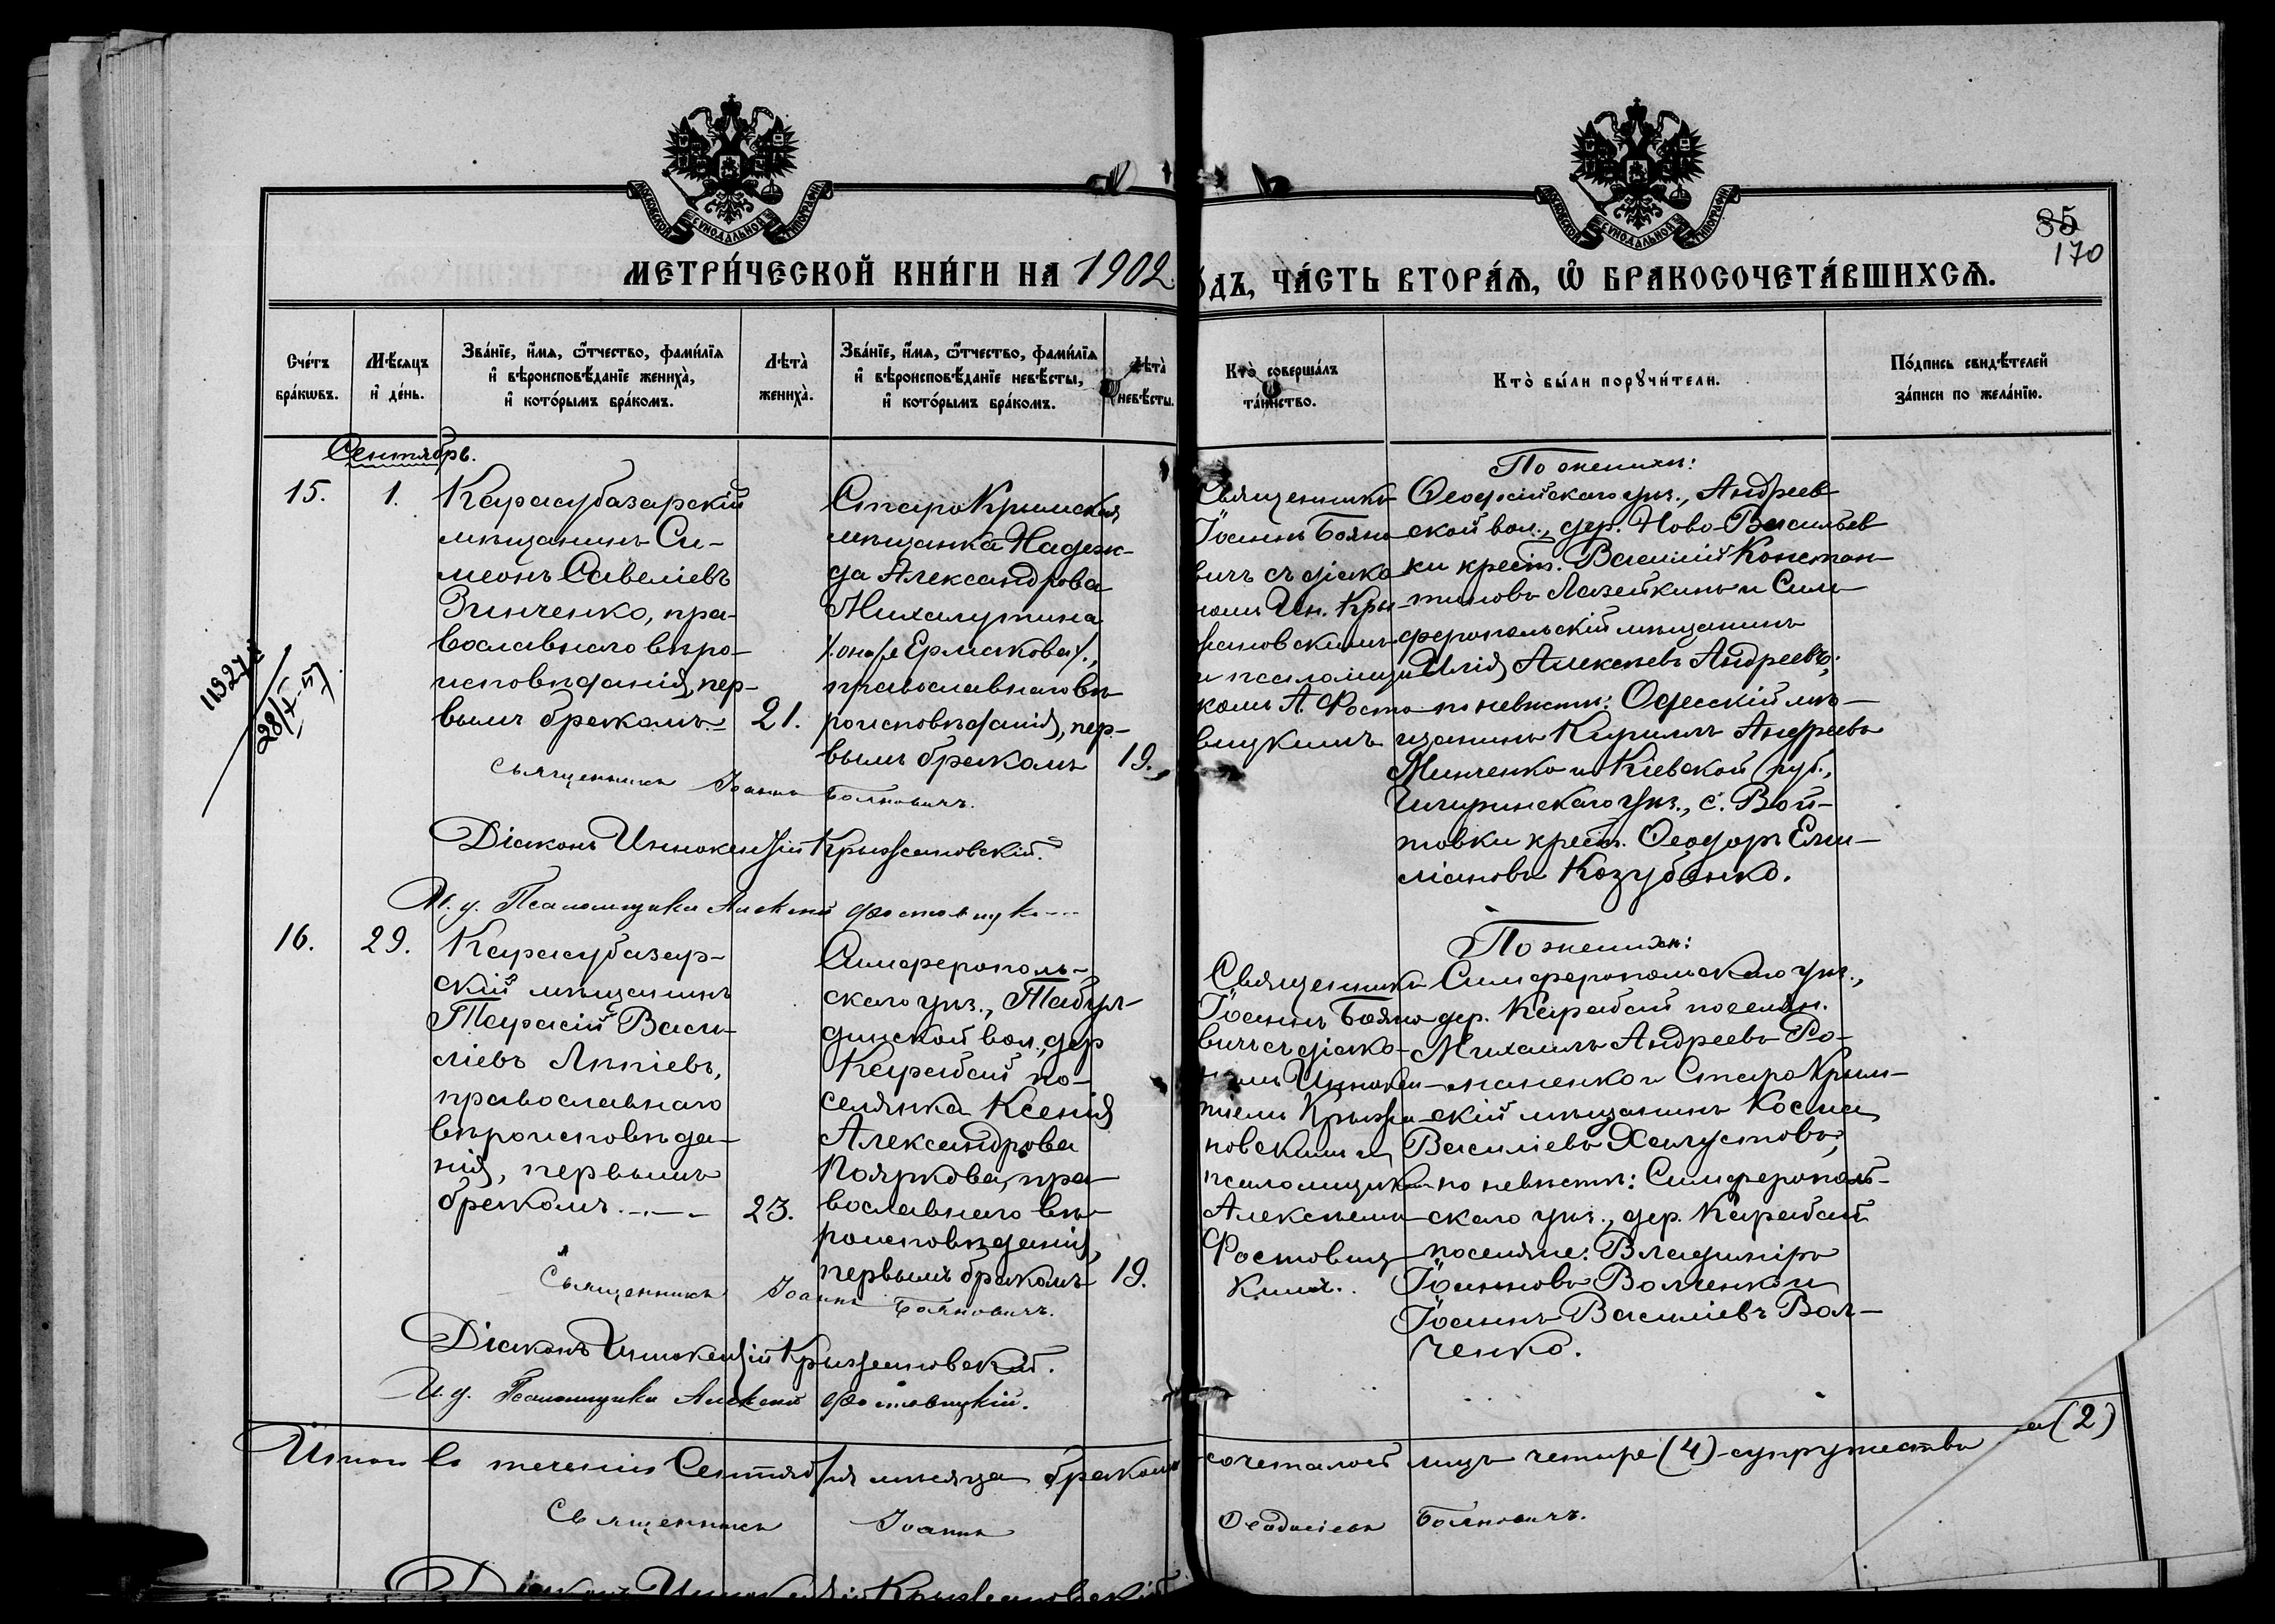 МОСКОВСКОЙ СѴНОДАЛЬНОЙ ТИПОГРАФІИ
МОСКОВСКОЙ СѴНОДАЛЬНОЙ ТИПОГРАФІИ
85
170
МЕТРИ́ЧЕСКОЙ КНИ́ГИ НА 1902
О́ДЪ, ЧА́СТЬ ВТОРА́Ѧ, Ѽ БРАКОСОЧЕТА́ВШИХСѦ.
Сче́тъ бра́кѡвъ.
Мѣ́сяцъ и҆ де́нь.
Зва́нїе, и҆́мя, ѻ҆́тчество, фами́лїя и҆ вѣроисповѣ́данїе жениха̀, и҆ кото́рымъ бра́комъ.
Лѣта̀ жениха̀.
Зва́нїе, и҆́мя, ѻ҆́тчество, фами́лїя и҆ вѣроисповѣ́данїе невѣ́сты, и҆ кото́рымъ бра́комъ.
Лѣта̀ невѣ́сты.
Кто̀ соверша́лъ та́инство.
Кто̀ бы́ли порꙋчи́тели.
По́дпись свидѣ́телей за́писи по жела́нїю.
Сентябрь.
15.
1.
Карасубазарскій
мѣщанинъ Си-
меонъ Савеліевъ
Зинченко, пра-
вославнаго вѣро-
исповѣданія, пер-
вымъ бракомъ.
21.
СтароКрымская
мѣщанка Надеж-
да Александрова
Михалутина
/:она же Ермакова:/,
православнаго вѣ-
роисповѣданія, пер-
вымъ бракомъ
19.
Священникъ
Іоаннъ Бояно-
вичъ съ діако-
номъ Ин. Кры-
жановскимъ
и псаломщи-
комъ А. Фосто-
вицкимъ
По женихѣ:
Ѳеодосійскаго уѣз., Андреев-
ской вол., дер. Ново-Васильев-
ки крест. Василій Констан-
тиновъ Лазейкинъ и Сим-
феропольскій мѣщанинъ
Илія Алексѣевъ Андреевъ;
по невѣстѣ: Одесскій мѣ-
щанинъ Кириллъ Андреевъ
Минченко и Кіевской губ.,
Чигиринскаго уѣз., с. Вой-
товки крест. Ѳеодоръ Еми-
ліановъ Козубенко.
11927
28/X-57
Священникъ Іоаннъ Бояновичъ.
Діаконъ Иннокентій Крыжановскій.
И. д. Псаломщика Алексій Фостовицк
16.
29.
Карасубазар-
скій мѣщанинъ
Тарасій Васи-
ліевъ Ляпіевъ,
православнаго
вѣроисповѣда-
нія, первымъ
бракомъ.
23.
Симферополь-
скаго уѣз., Табул-
динской вол., дер
Карабай по-
селянка Ксенія
Александрова
Пояркова, пра-
вославнаго вѣ-
роисповѣданія,
первымъ бракомъ
19.
Священникъ
Іоаннъ Бояно-
вичъ съ діако-
номъ Иннокен-
тіемъ Крыжа-
новскимъ и
псаломщикомъ
Алексѣемъ
Фостовиц-
кимъ.
По женихѣ:
Симферопольскаго уѣз.,
дер. Карабай поселян.
Михаилъ Андреевъ Ро-
маненко и СтароКрым-
скій мѣщанинъ Косма
Василіевъ Халустовъ;
по невѣстѣ: Симферополь-
скаго уѣз., дер. Карабай
поселяне: Владиміръ
Іоанновъ Волченко и
Іоаннъ Василіевъ Вол-
ченко.
Священникъ Іоаннъ Бояновичъ.
Діаконъ Иннокентій Крыжановскій.
И. д. Псаломщика Алексій Фостовицкій.
Итого въ теченіи Сентября мѣсяца бракомъ сочеталось лицъ четыре (4) - супружества (2)
Священникъ Іоаннъ Ѳеодосіевъ Бояновичъ.
Діаконъ Иннокентій Крыжановскій